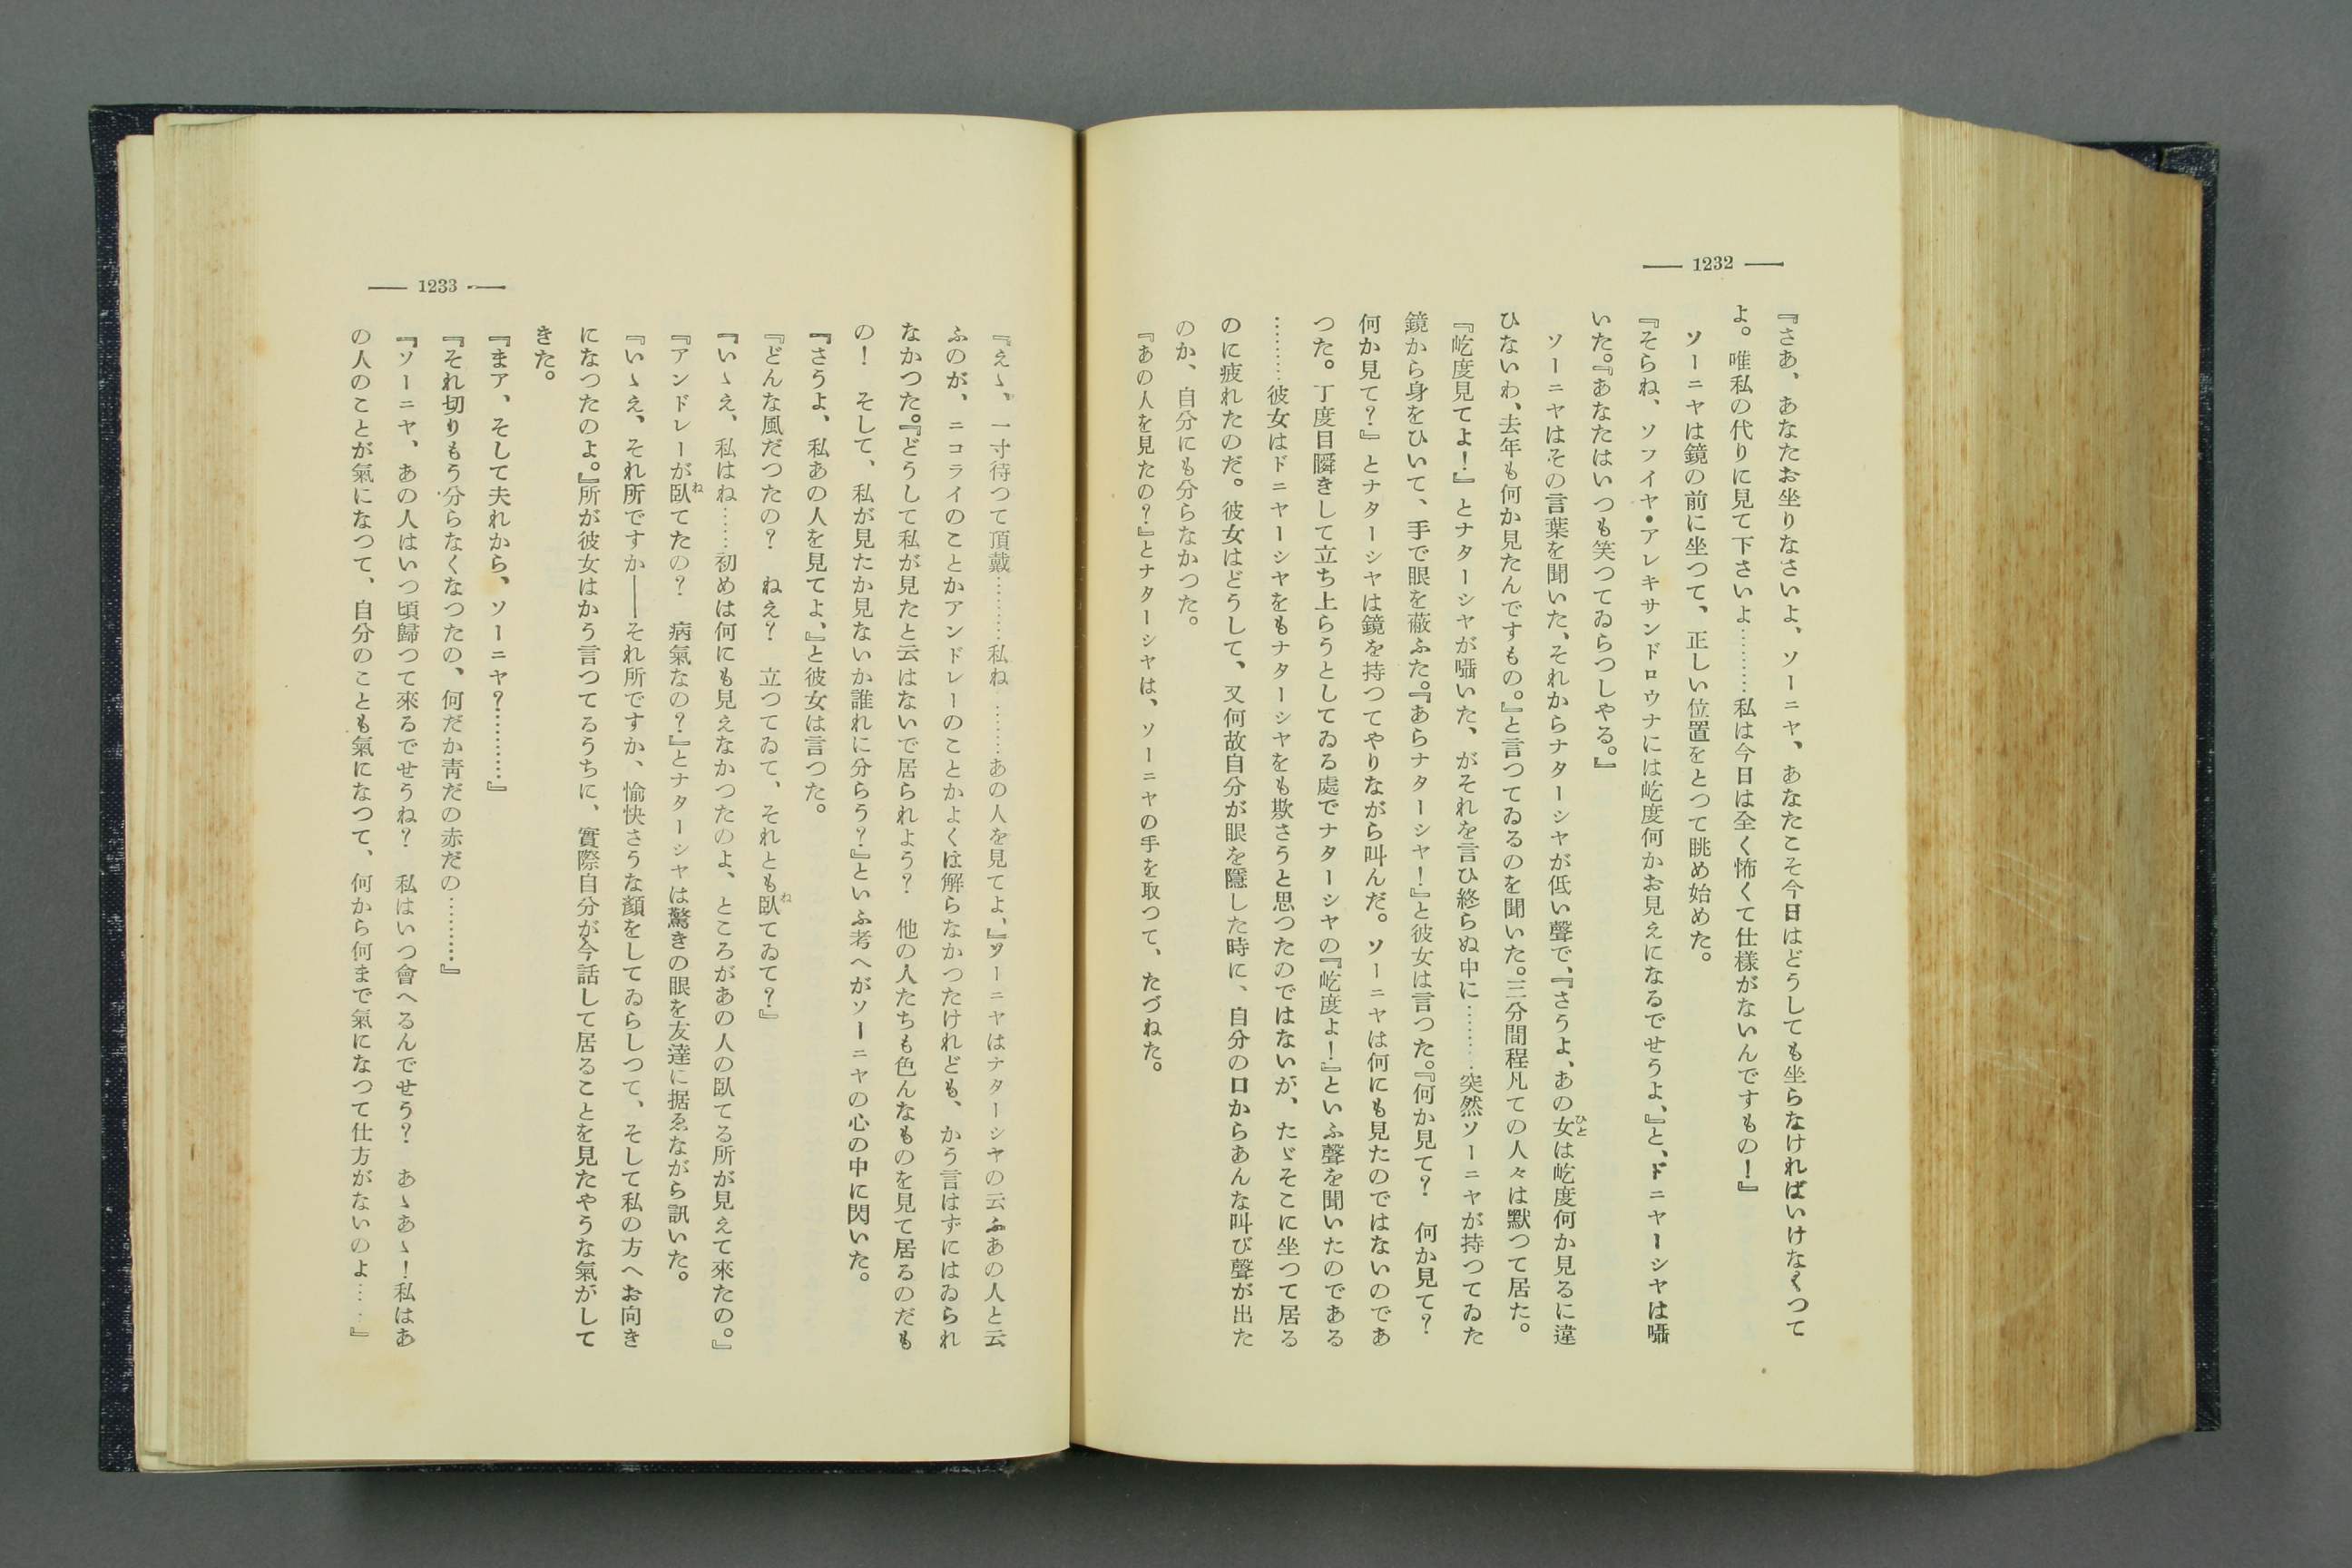 — 1232 —
『さあ、あなたお坐りなさいよ、ソーニヤ、あなたこそ今日はどうしても坐らなければいけなくつて
よ。唯私の代りに見て下さいよ………私は今日は全く怖くて仕様がないんですもの！』
ソーニヤは鏡の前に坐つて、正しい位置をとつて眺め始めた。
『そらね、ソフイヤ・アレキサンドロウナには屹度何かお見えになるでせうよ、』と、ドニヤーシヤは囁
いた。『あなたはいつも笑つてゐらつしやる。』
ソーニヤはその言葉を聞いた、それからナターシヤが低い聲で、『さうよ、あの女ひとは屹度何か見るに違
ひないわ、去年も何か見たんですもの。』と言つてゐるのを聞いた。三分間程凡ての人々は默つて居た。
『屹度見てよ！』とナターシヤが囁いた、がそれを言ひ終らぬ中に………突然ソーニヤが持つてゐた
鏡から身をひいて、手で眼を蔽ふた。『あらナターシヤ！』と彼女は言つた。『何か見て？　何か見て？
何か見て？』とナターシヤは鏡を持つてやりながら叫んだ。ソーニヤは何にも見たのではないのであ
つた。丁度目瞬きして立ち上らうとしてゐる處でナターシヤの『屹度よ！』といふ聲を聞いたのである
………彼女はドニヤーシヤをもナターシヤをも欺さうと思つたのではないが、たゞそこに坐つて居る
のに疲れたのだ。彼女はどうして、又何故自分が眼を隱した時に、自分の口からあんな叫び聲が出た
のか、自分にも分らなかつた。
『あの人を見たの？』とナターシヤは、ソーニヤの手を取つて、たづねた。
— 1233 —
『えゝ、一寸待つて頂戴………私ね……あの人を見てよ、』ソーニヤはナターシヤの云ふあの人と云
ふのが、ニコライのことかアンドレーのことかよくは解らなかつたけれども、かう言はずにはゐられ
なかつた。『どうして私が見たと云はないで居られよう？　他の人たちも色んなものを見て居るのだも
の！　そして、私が見たか見ないか誰れに分らう？』といふ考へがソーニヤの心の中に閃いた。
『さうよ、私あの人を見てよ、』と彼女は言つた。
『どんな風だつたの？　ねえ？　立つてゐて、それとも臥ねてゐて？』
『いゝえ、私はね……初めは何にも見えなかつたのよ、ところがあの人の臥てる所が見えて來たの。』
『アンドレーが臥ねてたの？　病氣なの？』とナターシヤは驚きの眼を友達に据ゑながら訊いた。
『いゝえ、それ所ですか――それ所ですか、愉快さうな顏をしてゐらしつて、そして私の方へお向き
になつたのよ。』所が彼女はかう言つてるうちに、實際自分が今話して居ることを見たやうな氣がして
きた。
『まア、そして夫れから、ソーニヤ？………』
『それ切りもう分らなくなつたの、何だか靑だの赤だの………』
『ソーニヤ、あの人はいつ頃歸つて來るでせうね？　私はいつ會へるんでせう？　あゝあゝ！私はあ
の人のことが氣になつて、自分のことも氣になつて、何から何まで氣になつて仕方がないのよ……』